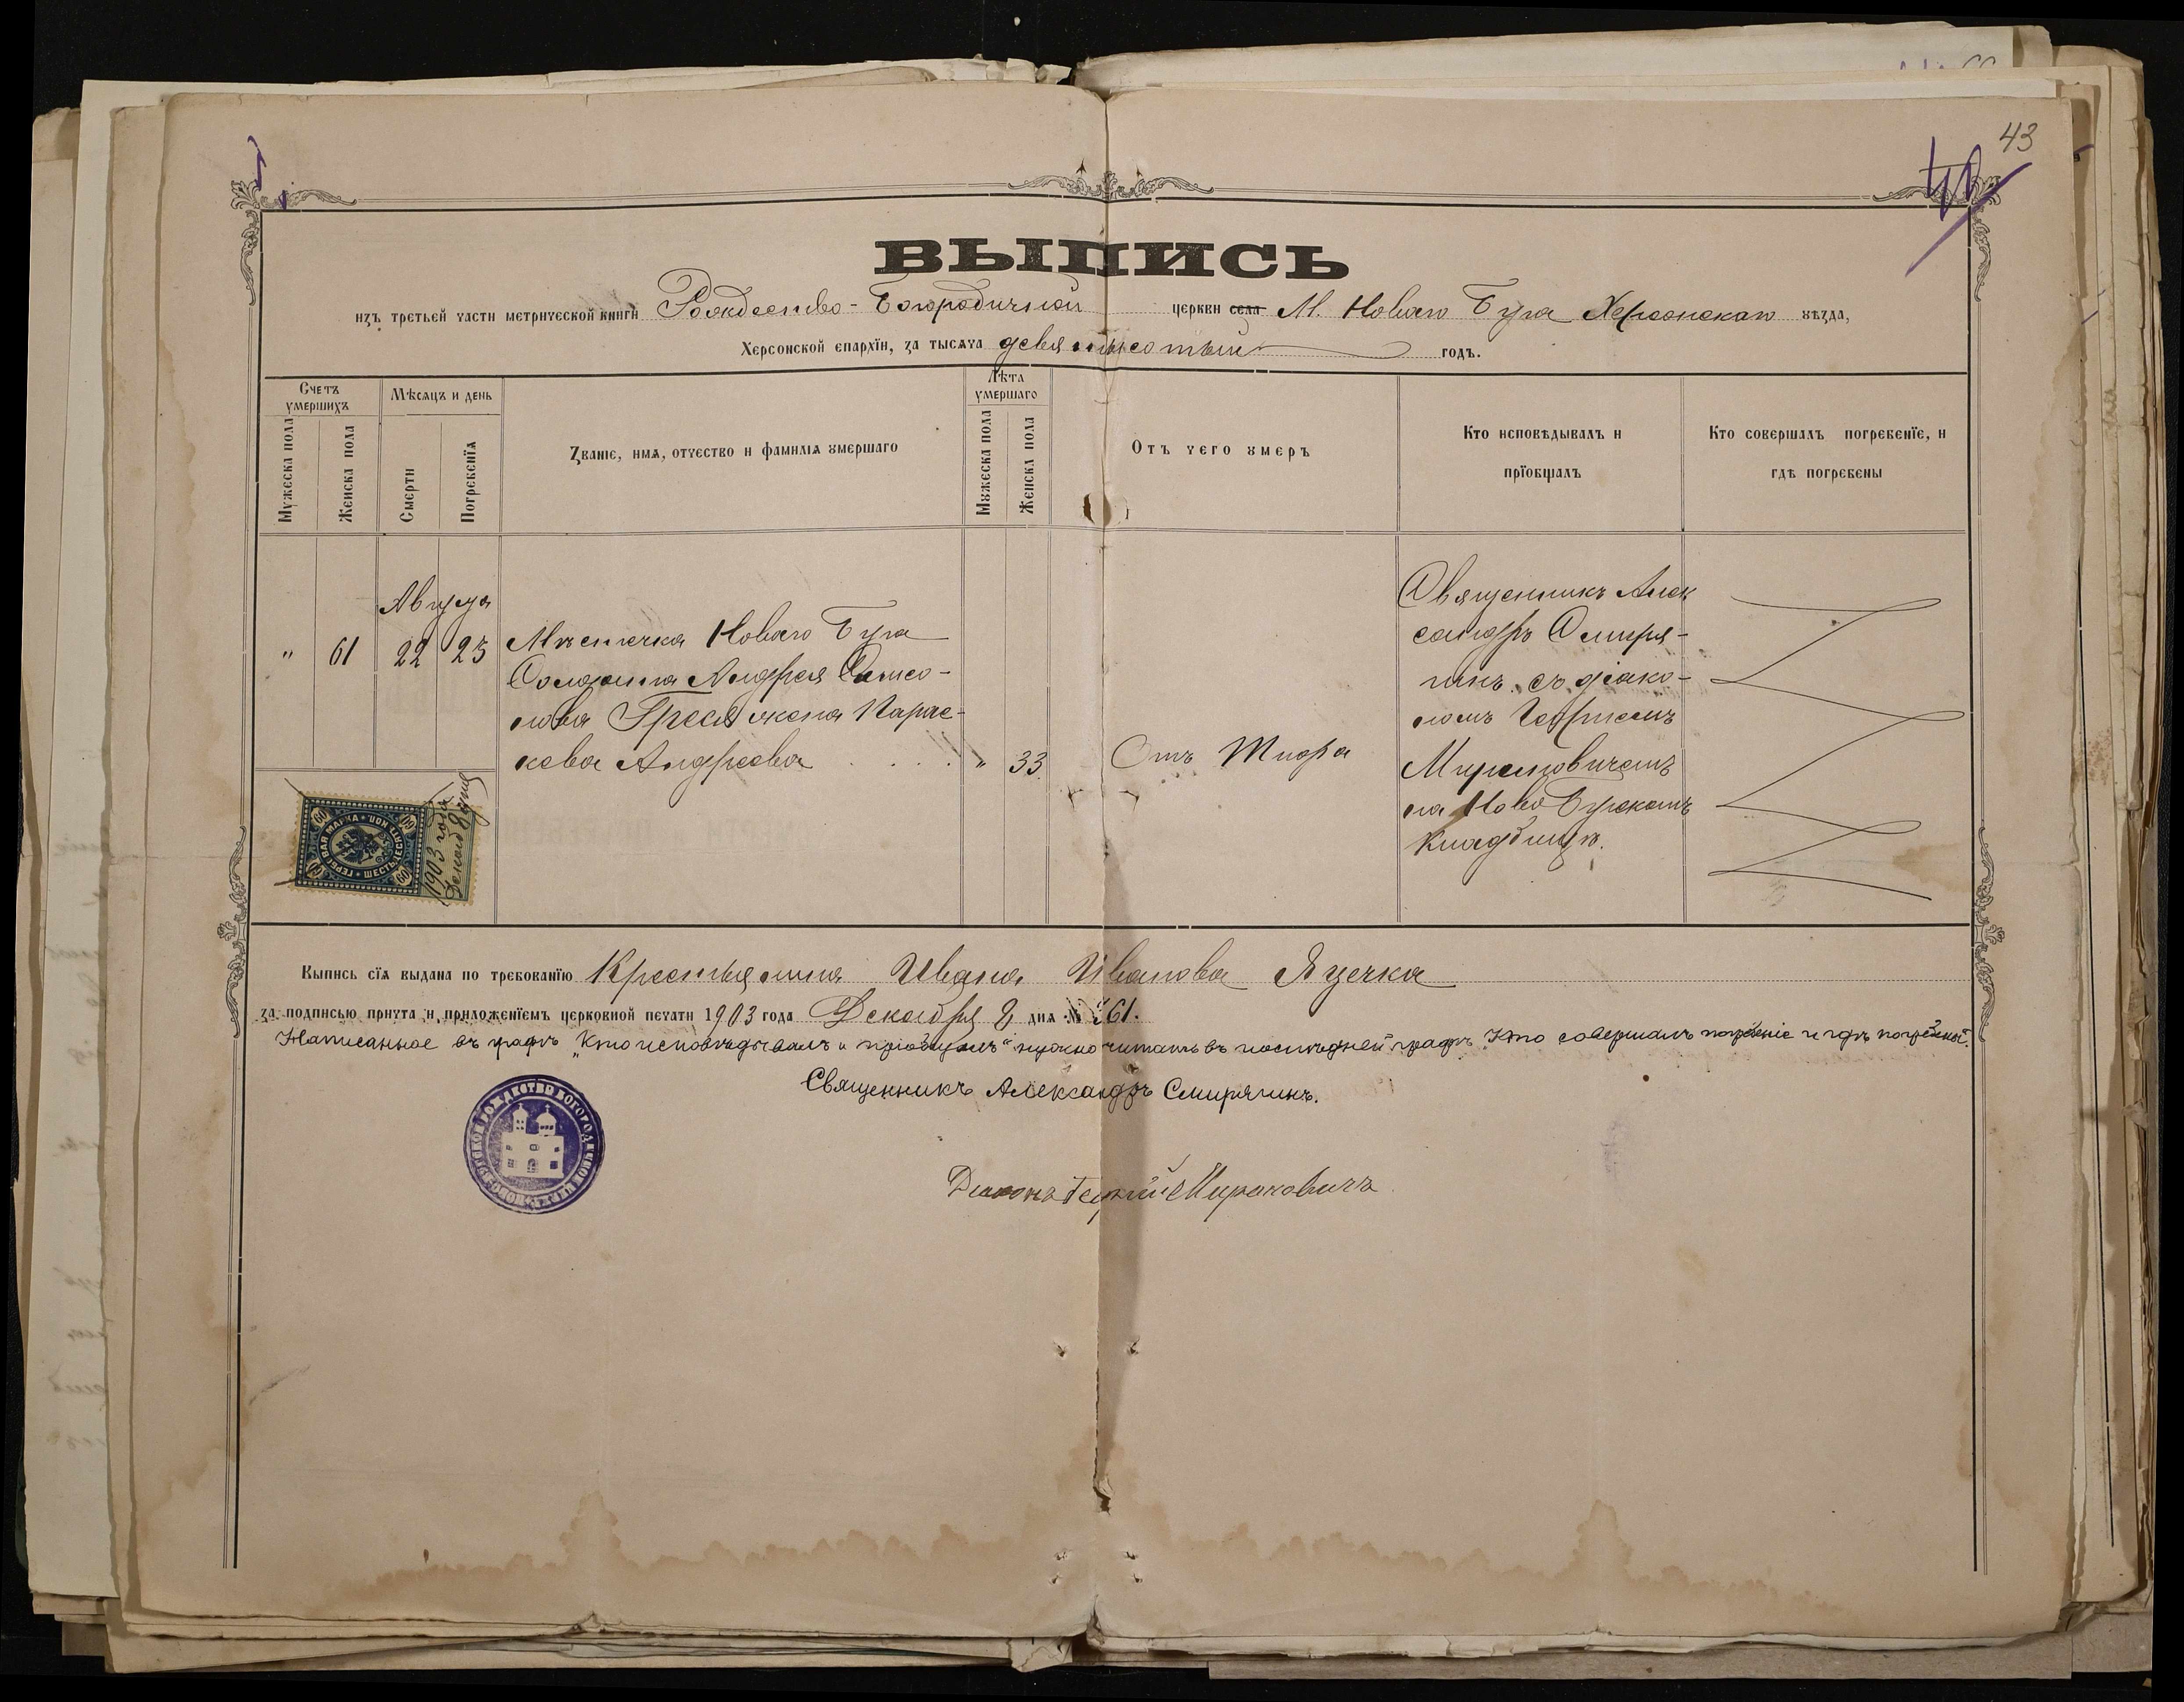 43
ВЫПИСЬ
изъ третьей части метрической книги Рождество-Богородичной церкви села М. Новаго Буга Херсонскаго уѣзда,
Херсонской епархїи, за тысяча девятьсотый годъ.
Счетъ умершихъ
Мужеска пола
Женска пола
Мѣсяцъ и день
Смерти
Погребенїя
Званіе, имя, отчество и фамилія умершаго
Лѣта умершаго
Мужеска пола
Женска пола
Отъ чего умеръ
Кто исповѣдывалъ и
прїобщалъ
Кто совершалъ погребенїе, и
гдѣ погребены
Августа
" 61 22 23
Мѣстечка Новаго Буга
Солдата Андрея
жена Парас-
кева Андреева
" 33
Отъ Тифа
Священникъ Алек
сандръ Смиря-
гинъ съ діако-
номъ Георгіемъ
Мироновичемъ
на Ново Бугскомъ
кладбищѣ.
60 60
ГЕРБОВАЯ МАРКА ШЕСТЬДЕСЯТЪ КОП.
60 60
1903 года
Декаб 8 дня
Выпись сїя выдана по требованїю Крестьянина Ивана Иванова Яценка
за подписью причта и приложенїемъ церковной печати 1903 года Декабря 8 дня № 561.
Написанное въ графѣ „Кто исповѣдывалъ и пріобщалъ" нужно читать въ послѣдней графѣ „Кто совершалъ погребеніе и гдѣ погребены".
Священникъ Александръ Смирягинъ.
Діаконъ Георгій Мироновичъ